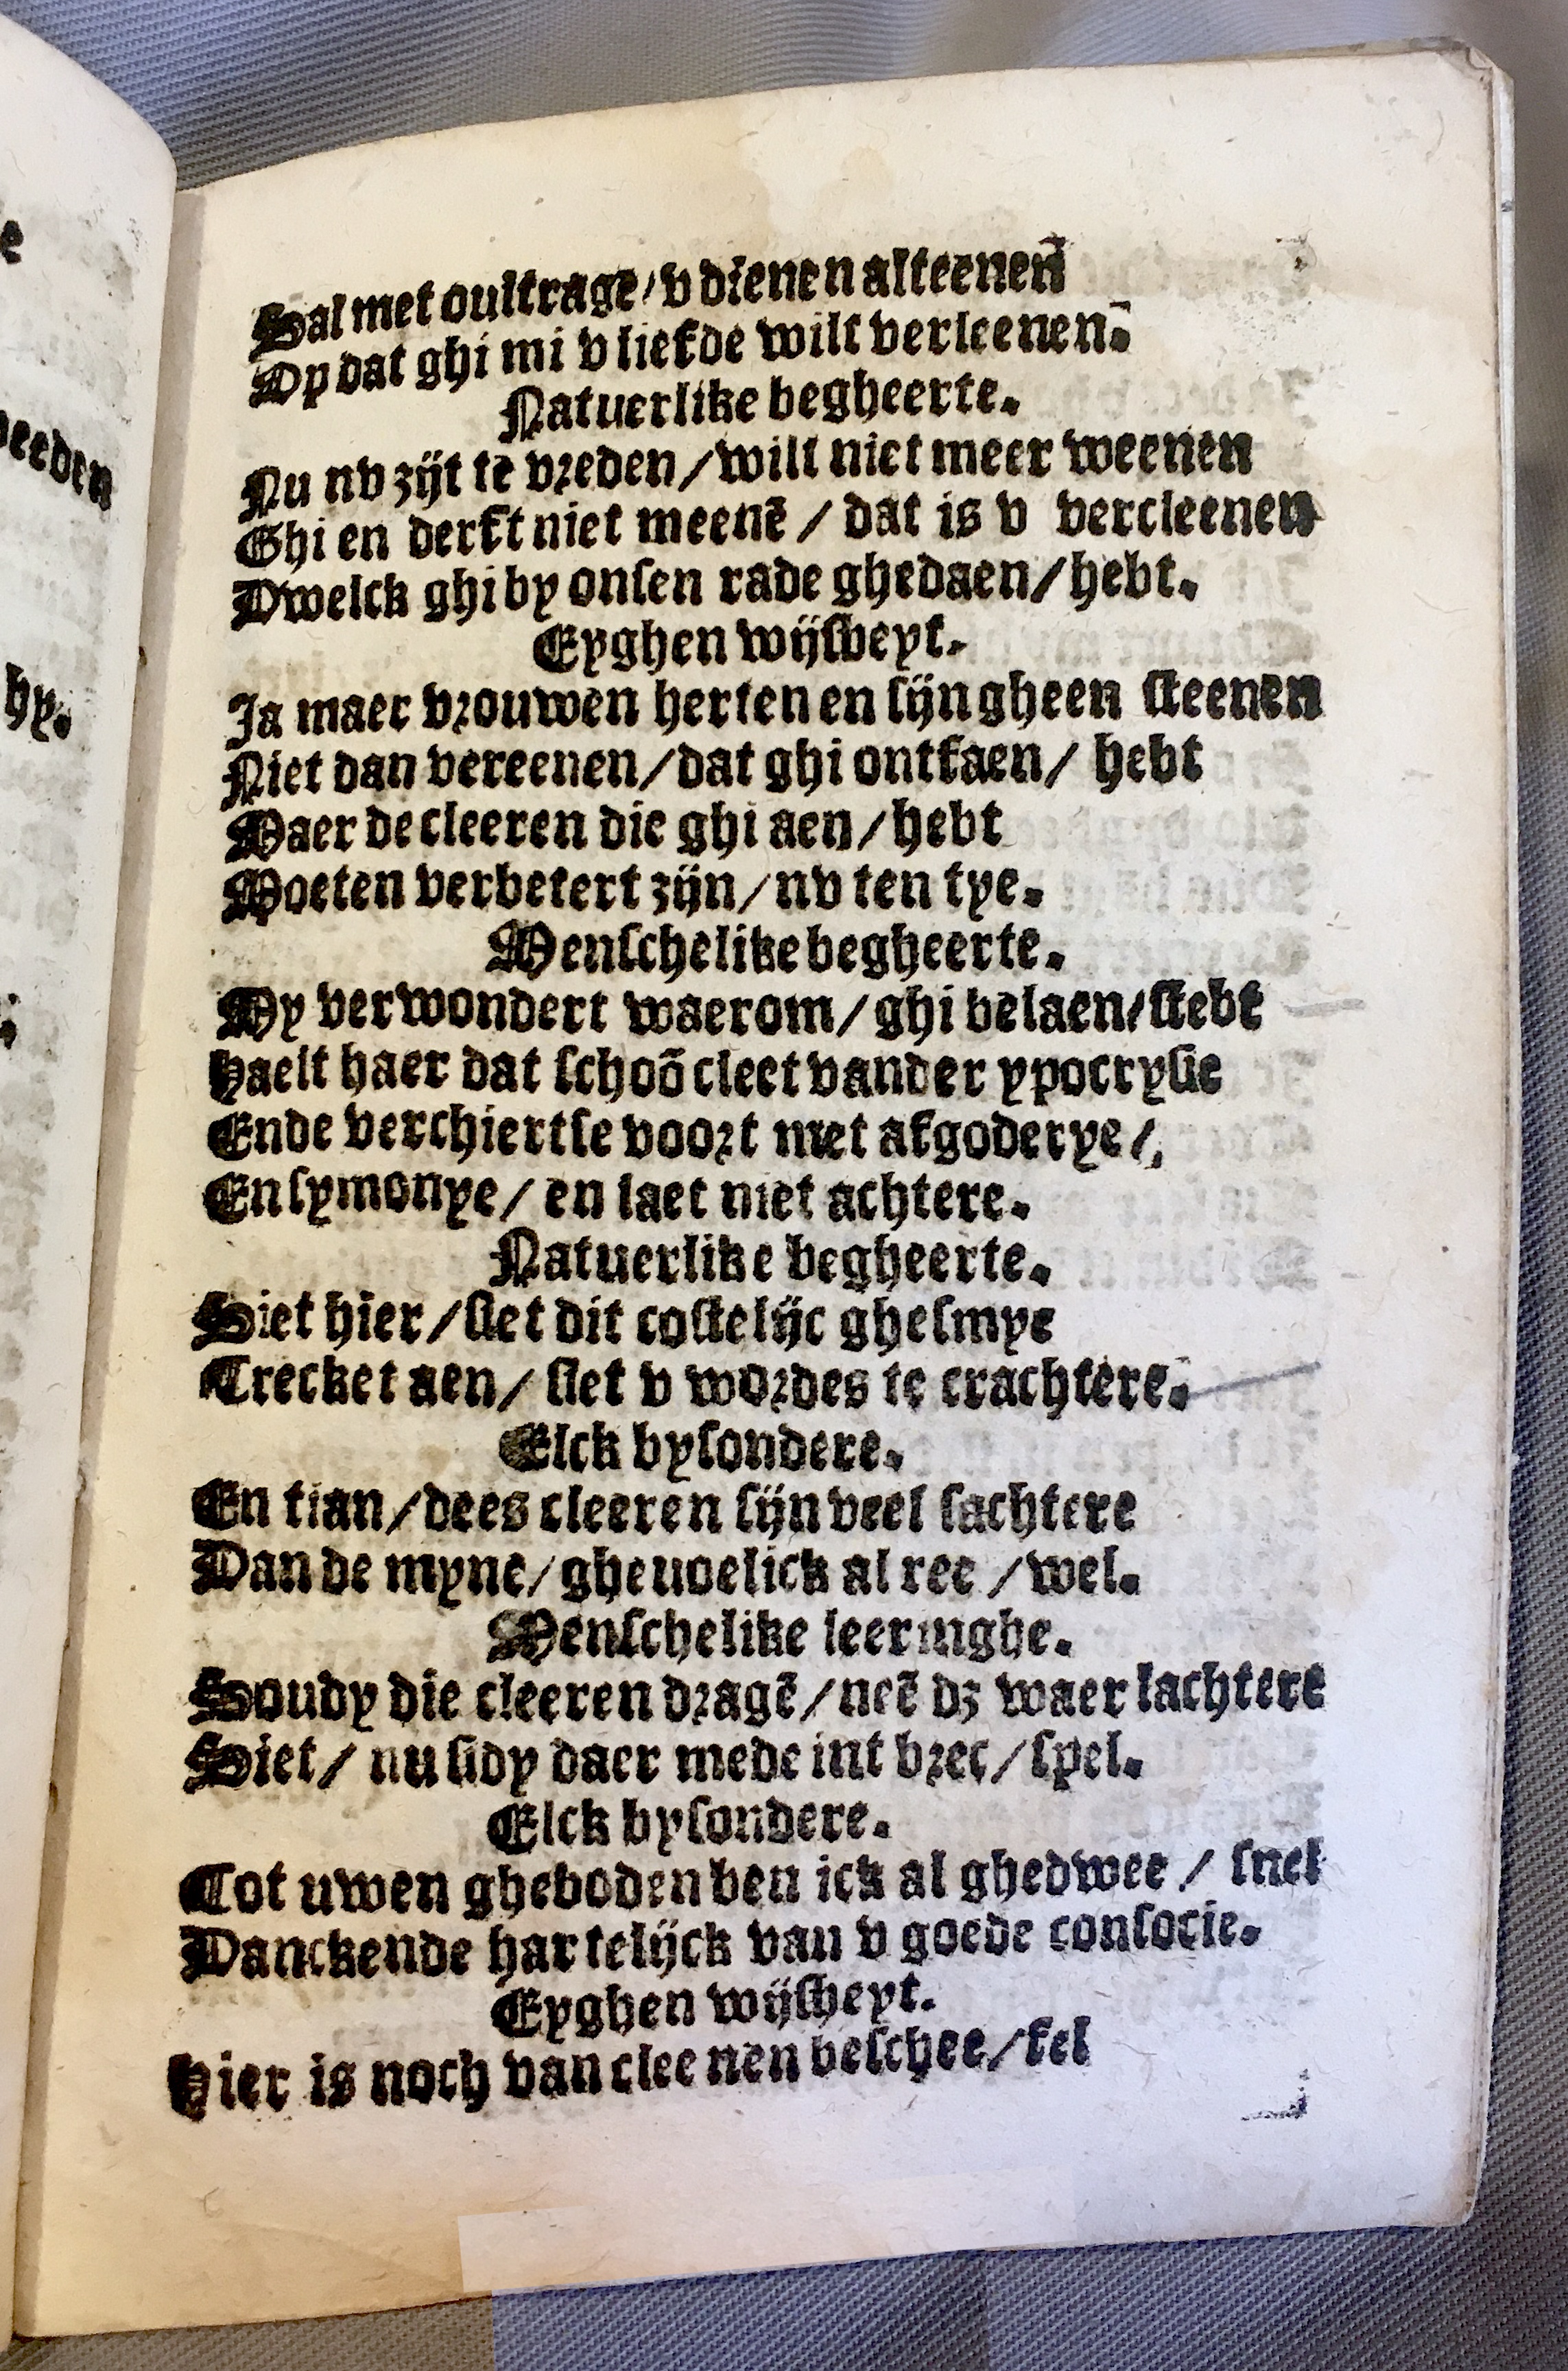 e
eeden
hy.
Sal met oultrage/ v dienen alteenen
Op dat ghi mi v liefde wilt verleenen.
Natuerlike begheerte.
Nu nv zijt te vreden/ wilt niet meer weenen
Ghi en derft niet meenē / dat is v vercleenen
Dwelck ghi by onsen rade ghedaen/ hebt.
Eyghen wijsheyt.
Ja maer vrouwen herten en sijn gheen steenen
Niet dan vereenen/ dat ghi ontfaen/ hebt
Maer de cleeren die ghi aen/ hebt
Moeten verbetert zijn/ nv ten tye.
Menschelike begheerte.
My verwondert waerom/ ghi belaen/ stebt
Haelt haer dat schoō cleet vander ypocrysie
Ende verchiertse voort met afgoderye/,
En symonye/ en laet niet achtere.
Natuerlike begheerte.
Siet hier/ siet dit costelijc ghesmye
Trecket aen/ siet v wordes te crachtere.
Elck bysondere.
En tian/ dees cleeren sijn veel sachtere
Dan de myne/ gheuoelick al ree / wel.
Menschelike leeringhe.
Soudy die cleeren dragē/ neē dz waer lachtere
Siet/ nu sidy daer mede int bree/ spel.
Elck bysondere.
Tot uwen gheboden ben ick al ghedwee / snel
Danckende hartelijck van v goede consocie.
Eyghen wijsheyt.
Hier is noch van cleenen beschee/ fel